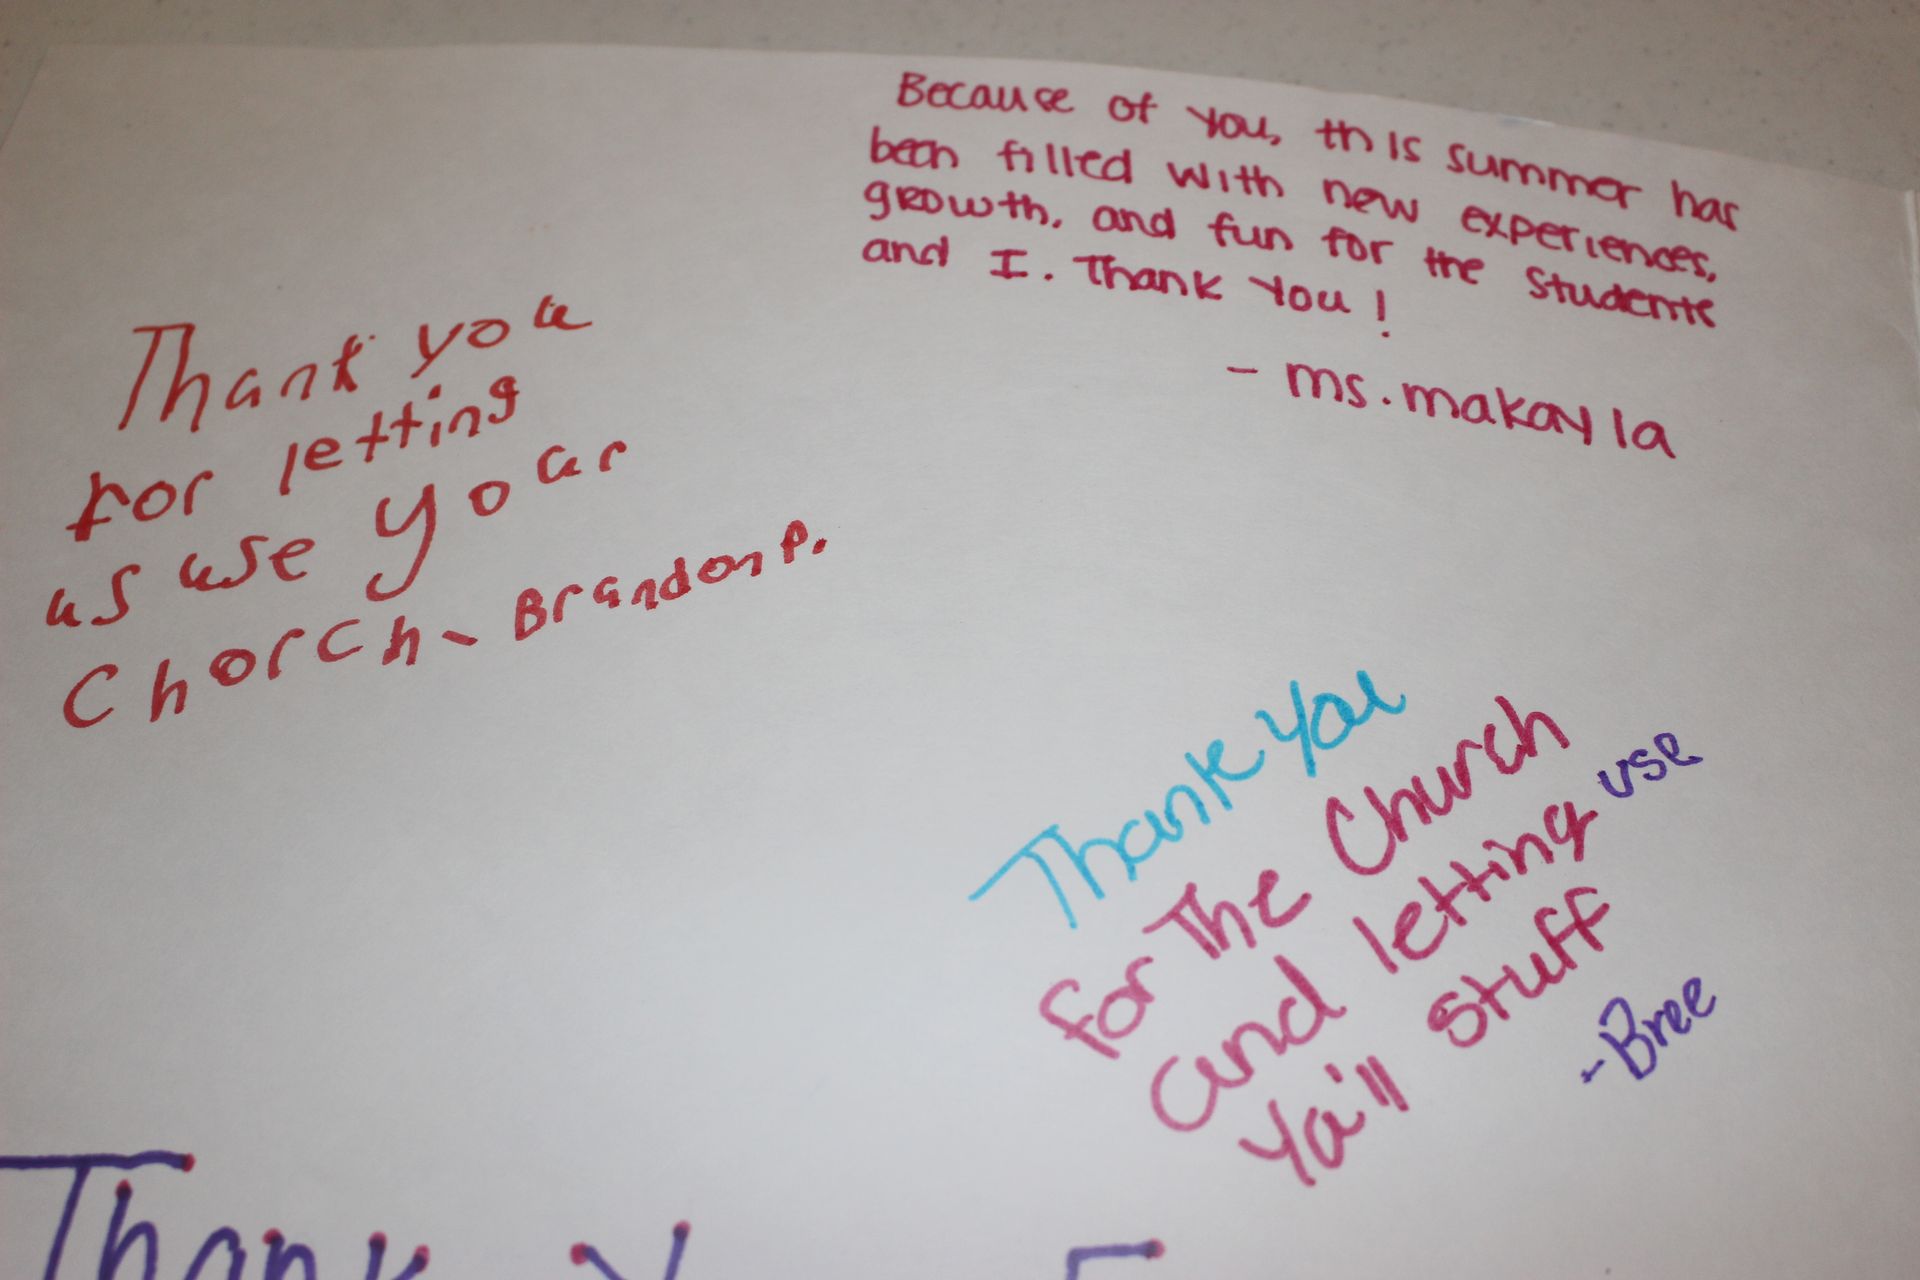 Because of you, this summer has
been filled with new experiences,
growth, and fun for the students
and I. Thank you!
- ms. makayla
Thank you
for letting
us use your
Chorch - Brandon P.
Thank You
for The Church
and letting use
Ya'll stuff
-Bree
Thank